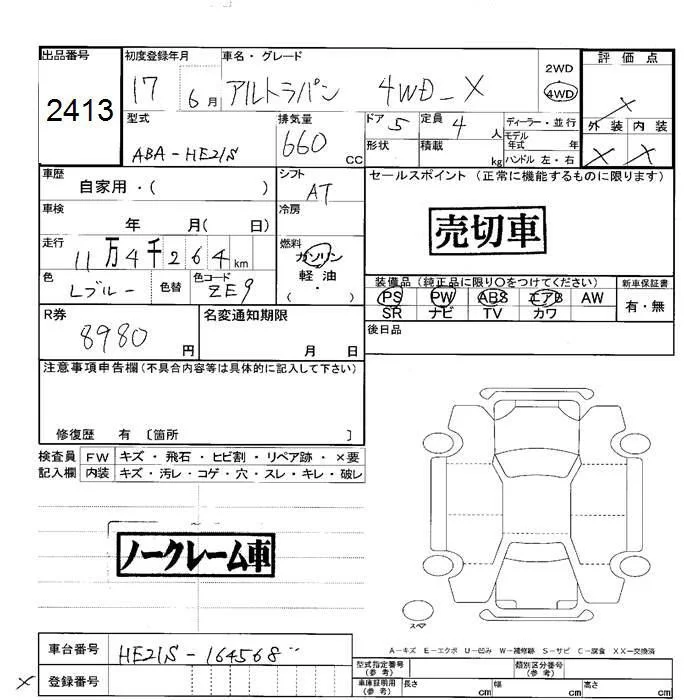 出品番号
2413
初度登録年月
17 6月
車名・グレード
アルトラパン 4WD-X
2WD
4WD
評価点
X
外装 内装
X X
型式
ABA-HE21S
排気量
660 CC
ドア 5
定員 4 人
形状
積載 kg
ディーラー・並行
モデル年式 年
ハンドル 左・右
車歴
自家用・( )
シフト
AT
車検
年 月( 日)
冷房
走行
11万4千264km
燃料
ガソリン
軽油
( ・ )
色
Lブルー
色替
色コード
ZE9
セールスポイント(正常に機能するものに限ります)
売切車
装備品(純正品に限り〇をつけてください)
PS PW ABS エアB AW
SR ナビ TV カワ
新車保証書
有・無
後日品
R券
8980 円
名変通知期限
月 日
注意事項申告欄(不具合内容等は具体的に記入して下さい)
修復歴 有 〔箇所 〕
検査員
記入欄
FW キズ・飛石・ヒビ割・リペア跡・×要
内装 キズ・汚レ・コゲ・穴・スレ・キレ・破レ
ノークレーム車
スペア
A-キズ E-エクボ U-凹み W-補修跡 S-サビ C-腐食 XX-交換済
車台番号
HE21S-164568
× 登録番号
型式指定番号
(参考)
類別区分番号
(参考)
車庫証明用
(参考)
長さ cm
幅 cm
高さ cm